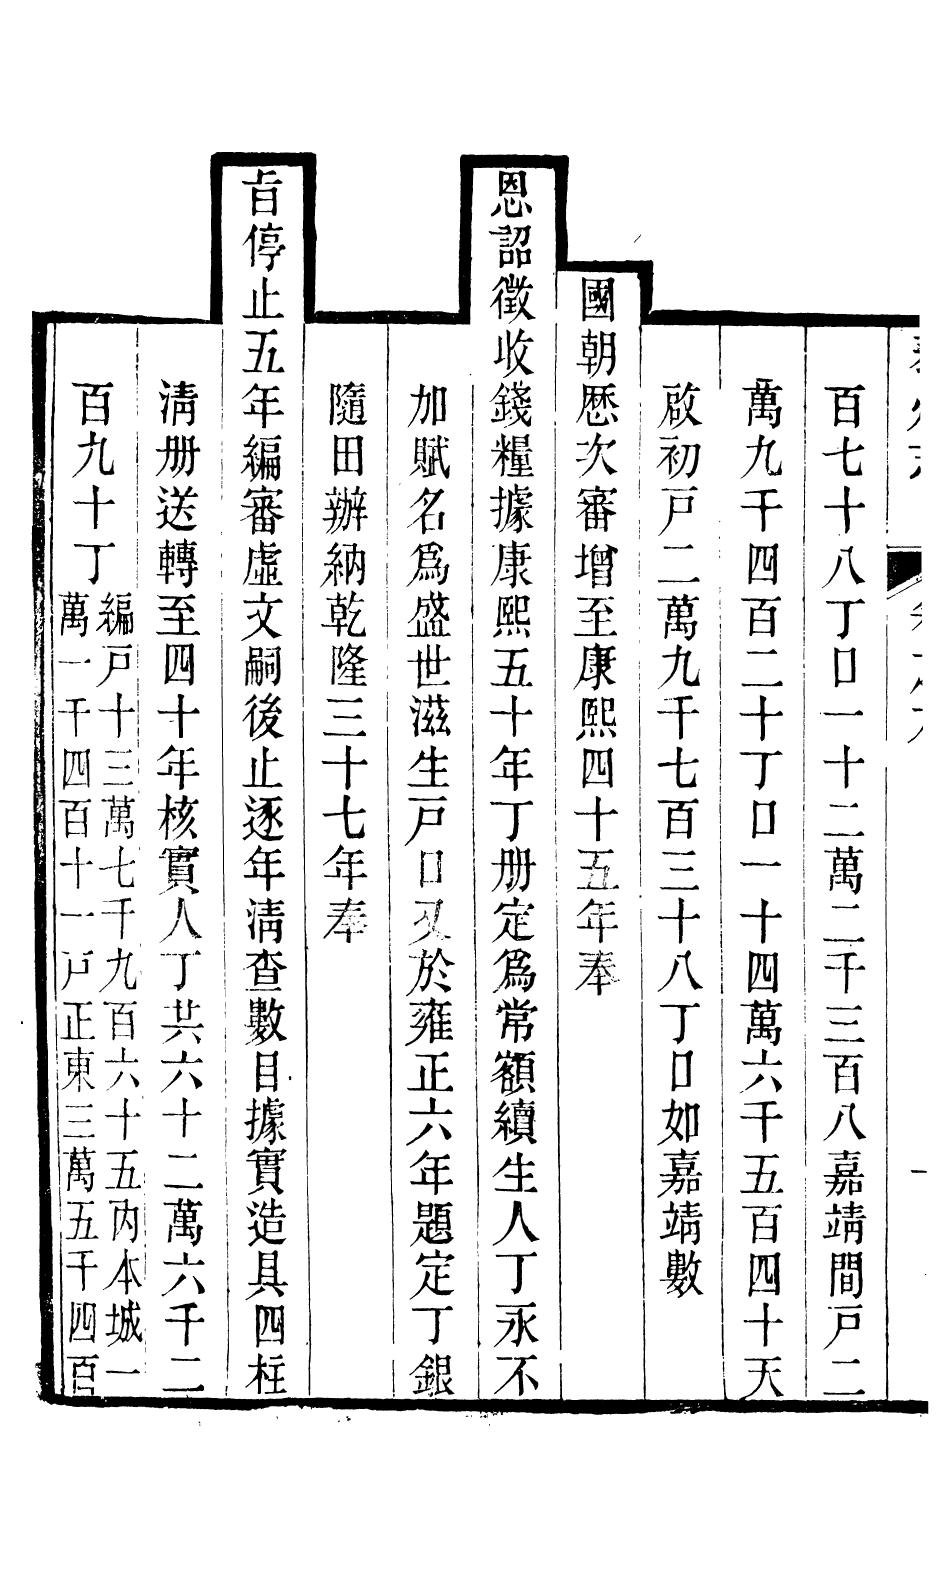 百七十八丁口一十二萬二千三百八嘉靖間戸二
萬九千四百二十丁口一十四萬六千五百四十天
啟初戸二萬九千七百三十八丁口如嘉靖數
國朝歷次審增至康熙四十五年奉
恩詔徵收錢糧據康熙五十年丁册定爲常額續生人丁永不
加賦名爲盛世滋生戸口又於雍正六年題定丁銀
隨田辦納乾隆三十七年奉
旨停止五年編審虛文嗣後止逐年淸查數目據實造具四柱
淸册送轉至四十年核實人丁共六十二萬六千二
百九十丁編戸十三萬七千九百六十五内本城一
萬一千四百十一戸正東三萬五千四百